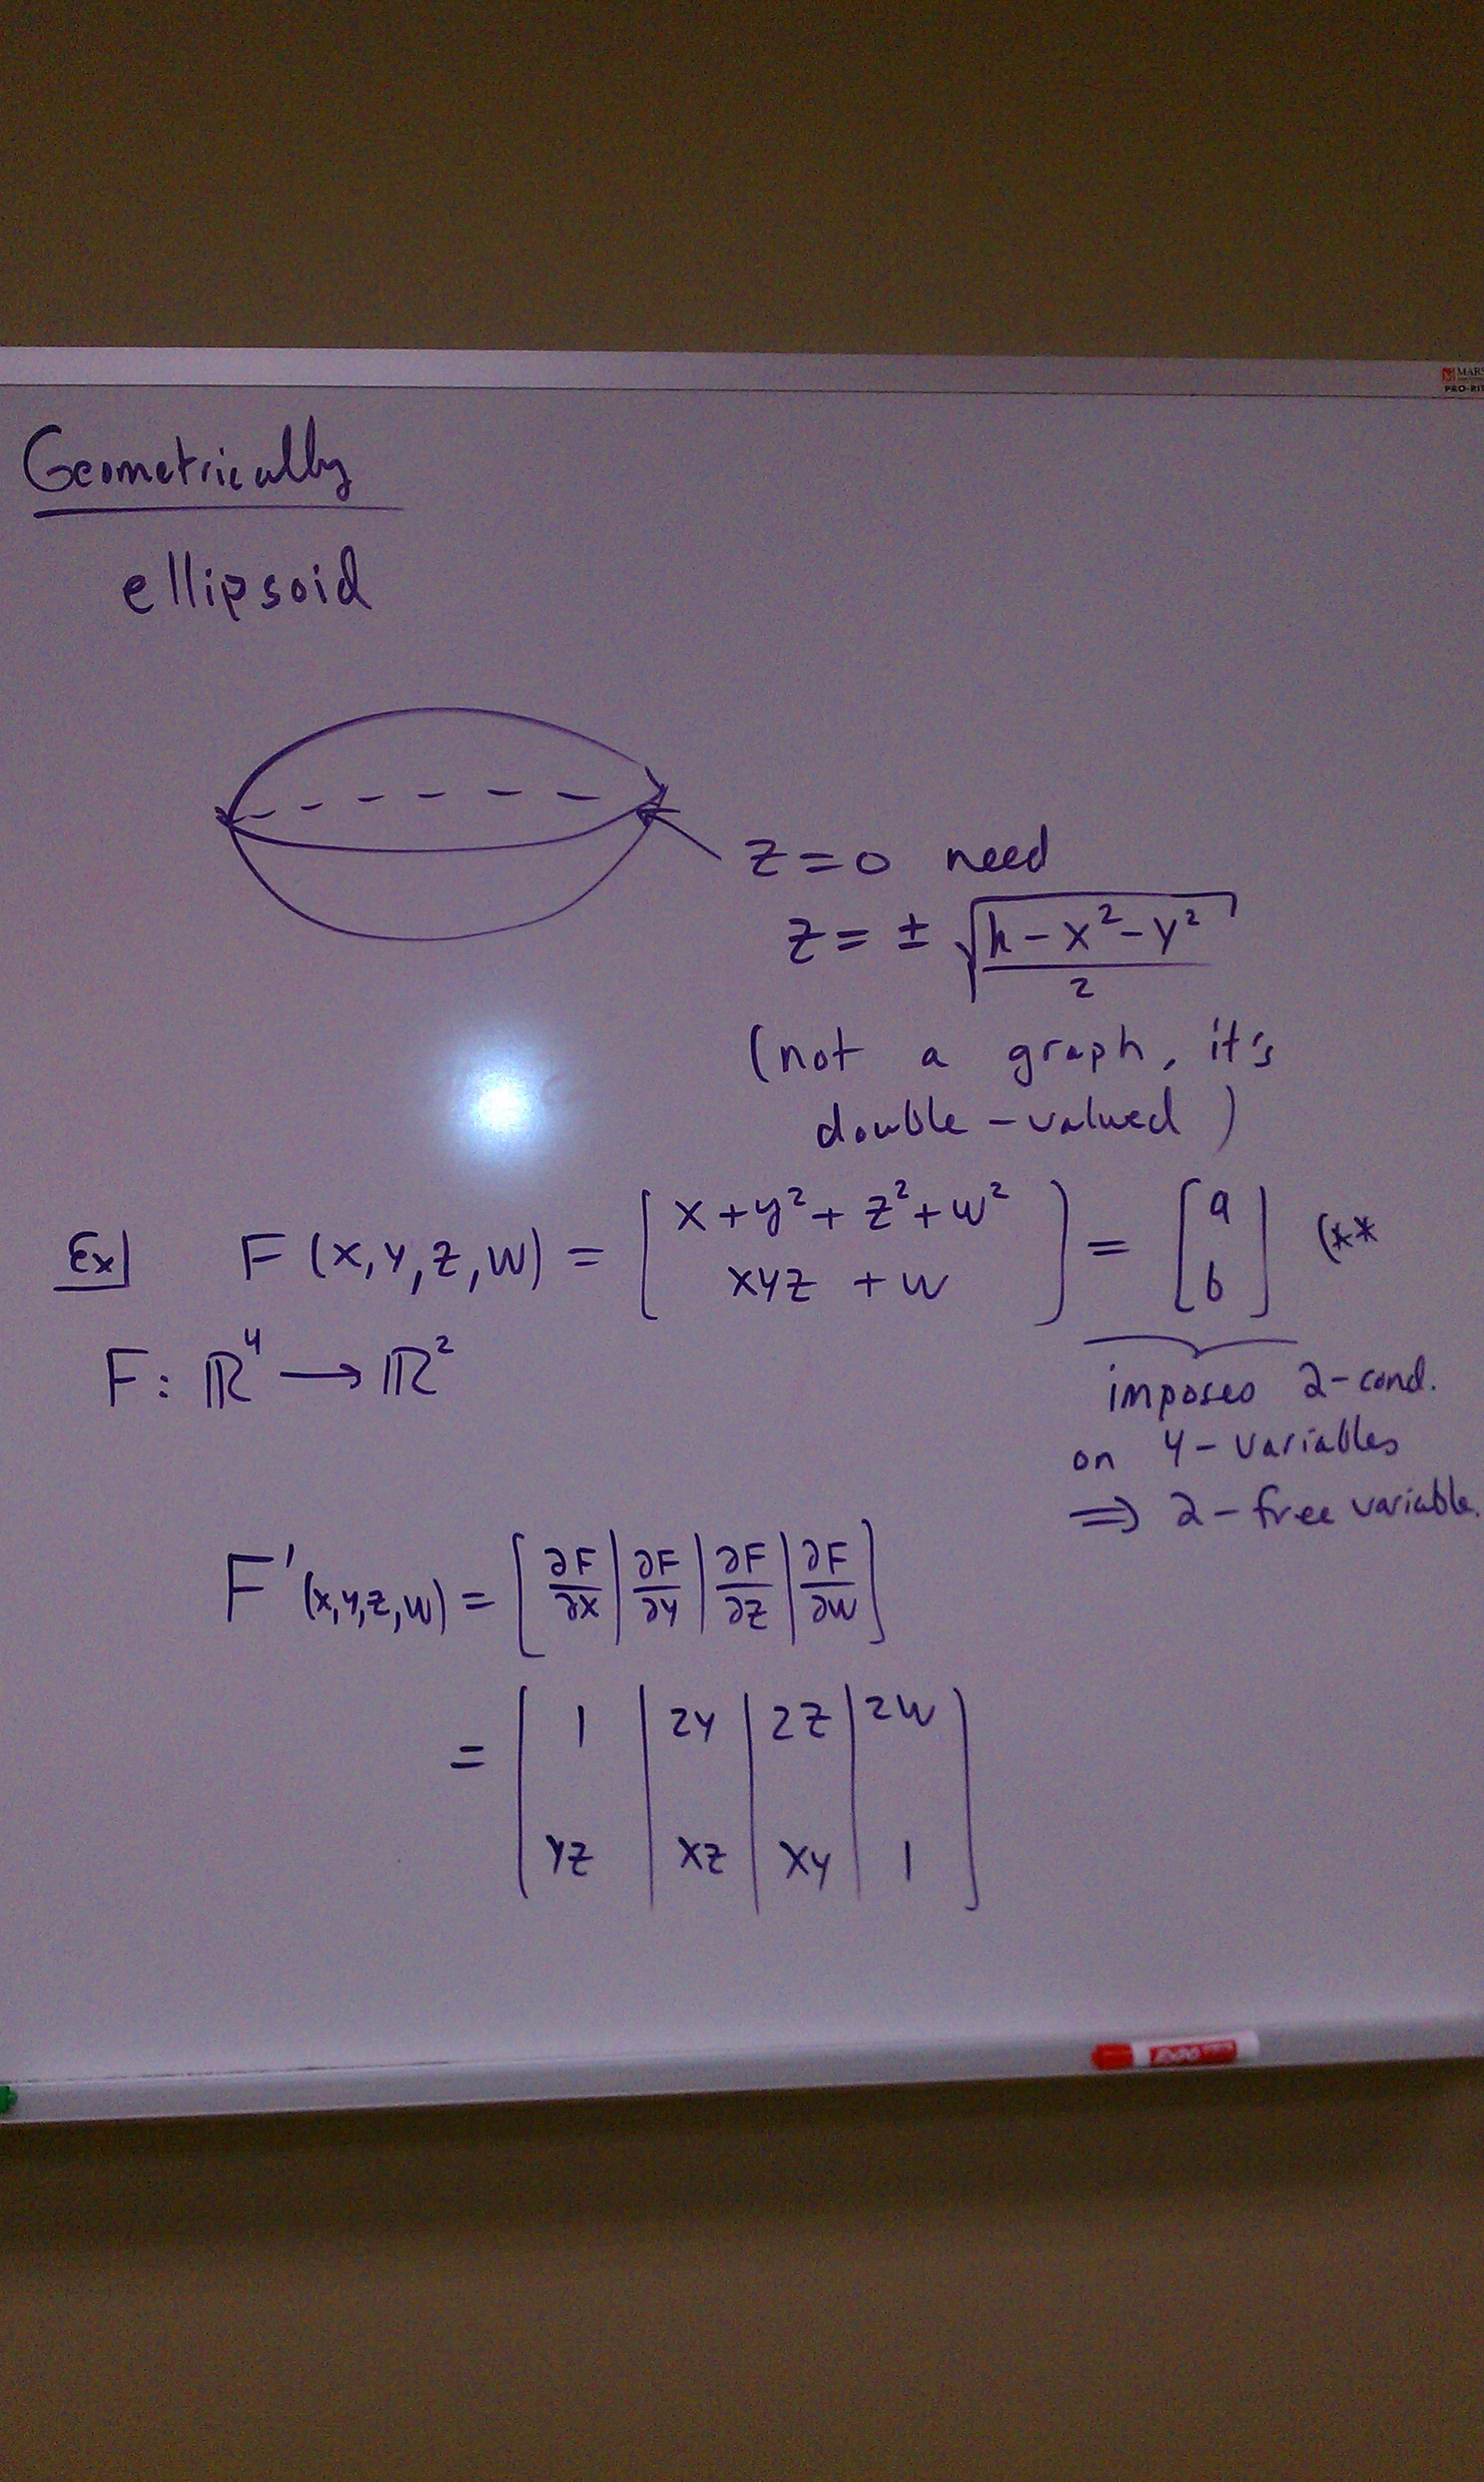 MARS
PRO-RIT
Geometrically
ellipsoid
z=0 need
z = ± √(k-x²-y² / 2)
(not a graph, it's
double-valued)
Ex] F(x,y,z,w) = [ x+y²+z²+w² ; xyz + w ] = [ a ; b ] (**
F: ℝ⁴ → ℝ²
imposes 2-cond.
on 4-variables
⇒ 2-free variable.
F'(x,y,z,w) = [ ∂F/∂x | ∂F/∂y | ∂F/∂z | ∂F/∂w ]
= [ 1 | 2y | 2z | 2w
yz | xz | xy | 1 ]
EXPO